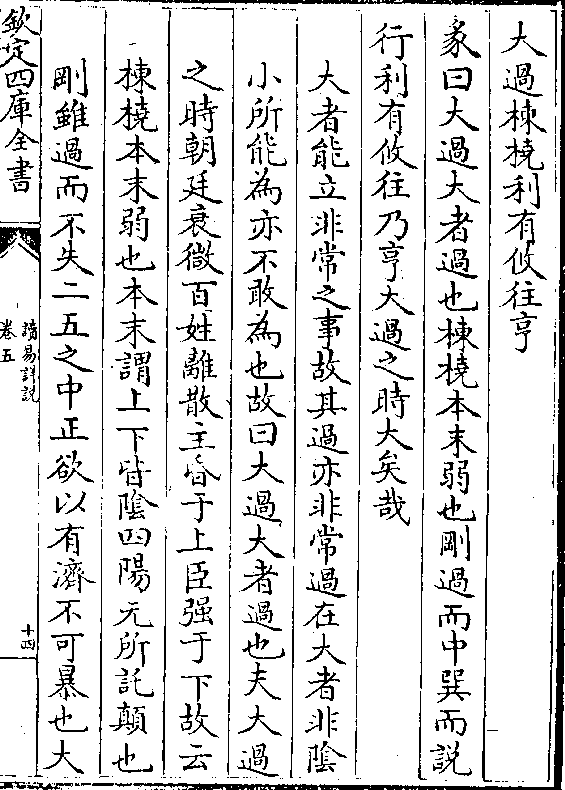 大過棟橈利有攸往亨
彖曰大過大者過也棟橈本末弱也剛過而中巽而說
行利有攸往乃亨大過之時大矣哉
大者能立非常之事故其過亦非常過在大者非陰
小所能為亦不敢為也故曰大過大者過也夫大過
之時朝廷衰微百姓離散主昏于上臣强于下故云
棟橈本末弱也本末謂上下皆陰四陽无所託顛也
剛雖過而不失二五之中正欲以有濟不可暴也大
欽定四庫全書
讀易詳說
卷五
十四